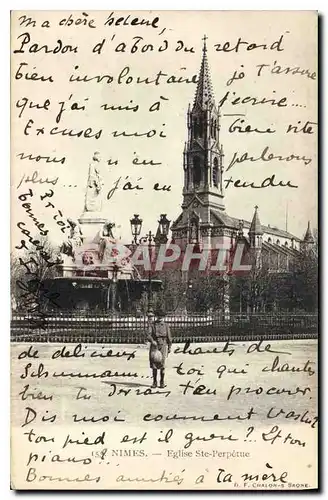 ma chère helene,
Pardon d'abord du retard
bien involontaire je t'assure
que j'ai mis à t'écrire....
Excuses moi bien vite
nous n'en parlerons
plus... j'ai eu rendu
Bonnes
caresses
à toi
CPAPHIL.COM
de délicieux chants de
Schumann. toi qui chantes
bien tu devrais t'en procurer
Dis moi comment va
ton pied est il guéri?.. Et ton
piano...
158 NIMES. — Eglise Ste-Perpétue
Bonnes amitiés à Ta mère
B. F. CHALON-S-SAONE